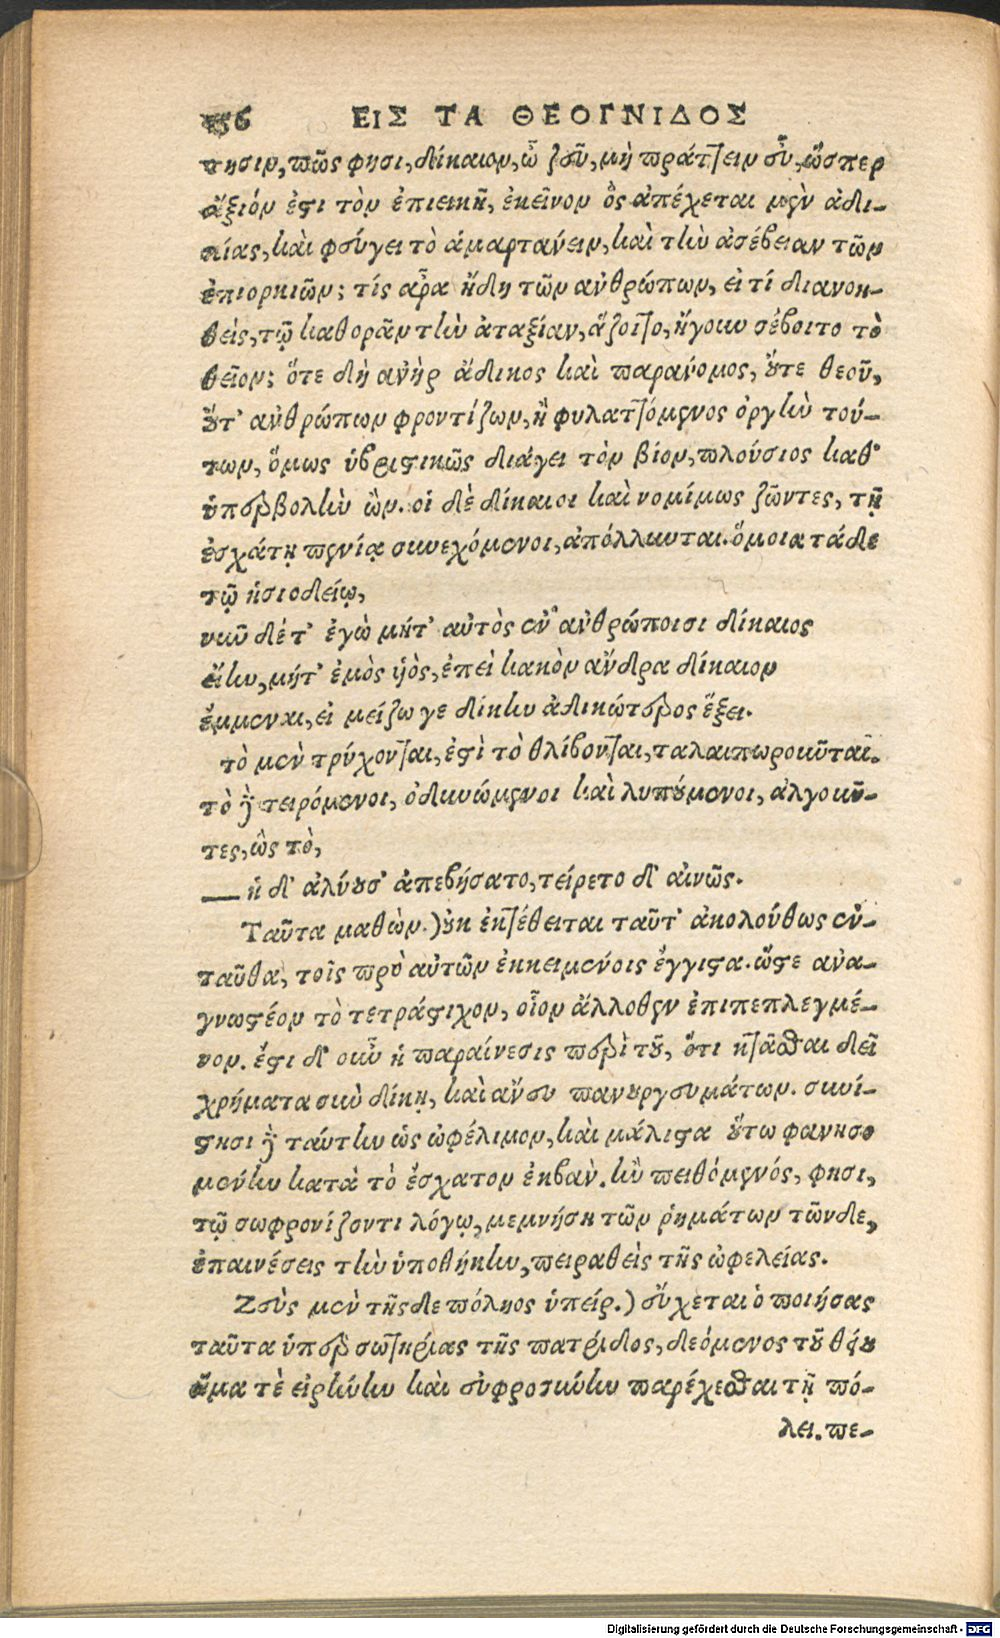 156 ΕΙΣ ΤΑ ΘΕΟΓΝΙΔΟΣ
τησιν, πῶς φησι, δίκαιον, ὦ ζεῦ, μὴ πράττειν εὖ, ὥσπερ
ἄξιόν ἐστι τὸν ἐπιεικῆ, ἐκεῖνον ὃς ἀπέχεται μὲν ἀδι-
κίας, καὶ φεύγει τὸ ἁμαρτάνειν, καὶ τὴν ἀσέβειαν τῶν
ἐπιορκιῶν; τίς ἆρα ἤδη τῶν ἀνθρώπων, εἰ τί διανοη-
θεὶς, τῷ καθορᾶν τὴν ἀταξίαν, ἅζοιτο, ἤγουν σέβοιτο τὸ
θεῖον; ὅτε δὴ ἀνὴρ ἄδικος καὶ παράνομος, οὔτε θεοῦ,
οὔτ' ἀνθρώπων φροντίζων, ἢ φυλαττόμενος ὀργὴν τού-
των, ὅμως ὑβριστικῶς διάγει τὸν βίον, πλούσιος καθ'
ὑπερβολὴν ὤν. οἱ δὲ δίκαιοι καὶ νομίμως ζῶντες, τῇ
ἐσχάτῃ πενίᾳ συνεχόμενοι, ἀπόλλυνται. ὅμοια τάδε
τῷ ἡσιοδείῳ,
νῦν δέ τ' ἐγὼ μήτ' αὐτὸς ἐν ἀνθρώποισι δίκαιος
εἴην, μήτ' ἐμὸς υἱὸς, ἐπεὶ κακὸν ἄνδρα δίκαιον
ἔμμεναι, εἰ μείζω γε δίκην ἀδικώτερος ἕξει.
τὸ μὲν τρύχονται, ἐστὶ τὸ θλίβονται, ταλαιπωροῦνται.
τὸ δὲ τειρόμενοι, ὀδυνώμενοι καὶ λυπούμενοι, ἀλγοῦν-
τες, ὡς τὸ,
— ἡ δ' ἀλύουσ' ἀπεβήσατο, τείρετο δ' αἰνῶς.
Ταῦτα μαθὼν.) οὐκ ἐκτέθειται ταῦτ' ἀκολούθως ἐν-
ταῦθα, τοῖς πρὸ αὐτῶν ἐκκειμένοις ἔγγιστα. ὥστε ἀνα-
γνωστέον τὸ τετράστιχον, οἷον ἄλλοθεν ἐπιπεπλεγμέ-
νον. ἔστι δ' οὖν ἡ παραίνεσις περὶ τοῦ, ὅτι κτᾶσθαι δεῖ
χρήματα σὺν δίκῃ, καὶ ἄνευ πανουργευμάτων. συνί-
στησι δὲ ταύτην ὡς ὠφέλιμον, καὶ μάλιστα οὕτω φανησο
μένην κατὰ τὸ ἔσχατον ἐκβὰν. ἣν πειθόμενός, φησι,
τῷ σωφρονίζοντι λόγῳ, μεμνήσῃ τῶν ῥημάτων τῶνδε,
ἐπαινέσεις τὴν ὑποθήκην, πειραθεὶς τῆς ὠφελείας.
Ζεὺς μὲν τῆςδε πόληος ὑπείρ.) εὔχεται ὁ ποιήσας
ταῦτα ὑπὲρ σωτηρίας τῆς πατρίδος, δεόμενος τοῦ θεοῦ
ἅμα τὲ εἰρήνην καὶ εὐφροσύνην παρέχεσθαι τῇ πό-
λει. πε-
Digitalisierung gefördert durch die Deutsche Forschungsgemeinschaft - DFG